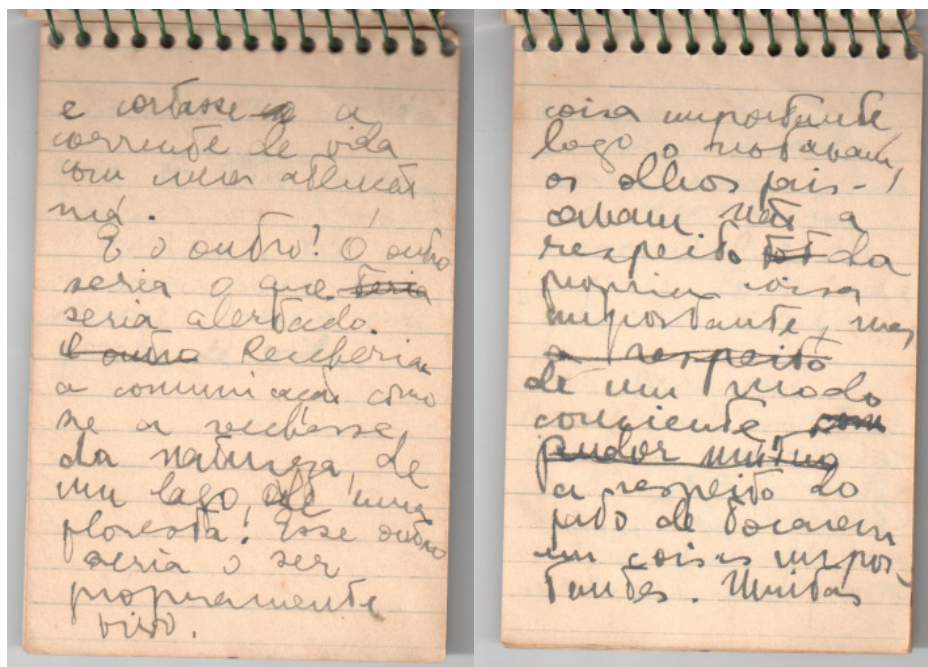 e cortasse a
corrente de vida
com uma
má.
E o outro! O outro
seria o que teria
seria alertado.
e outro Receberia
a comunicação como
se a recebesse
da natureza, de
um lago, de uma
floresta! Esse outro
seria o ser
propriamente
coisa importante
logo o notavam,
os olhos pis-
cavam não a
respeito da
propria coisa
importante, mas
a respeito
de um modo
conciente com
pudor mutuo
a respeito do
fato de tocarem
em coisas impor-
tantes. Muitas